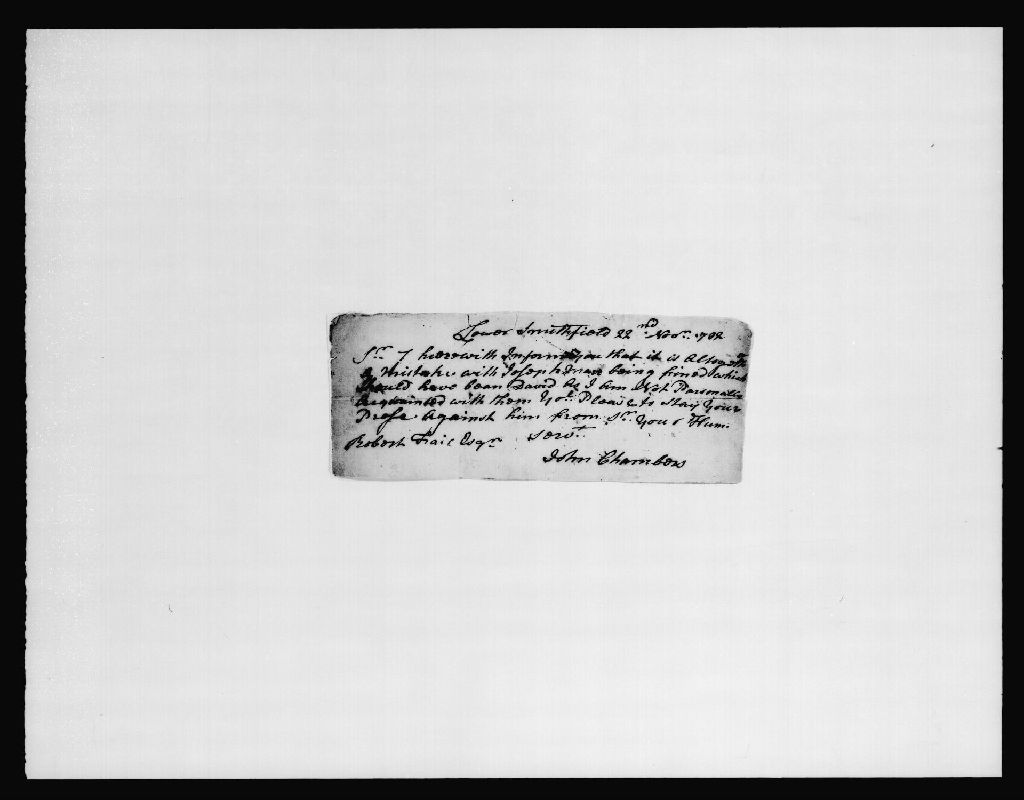 Lower Smithfield 22nd Novr. 1782
Sr. I herewith Inform you that it is Altogeth
a Mistake with Joseph being fined which
Should have been David As I Am Not Parsonally
Acquainted with them Yor. Please to Stay Your
Prose Against him from Sr. Your Hum.
Robert Traile Esqr Servt.
John Chambers